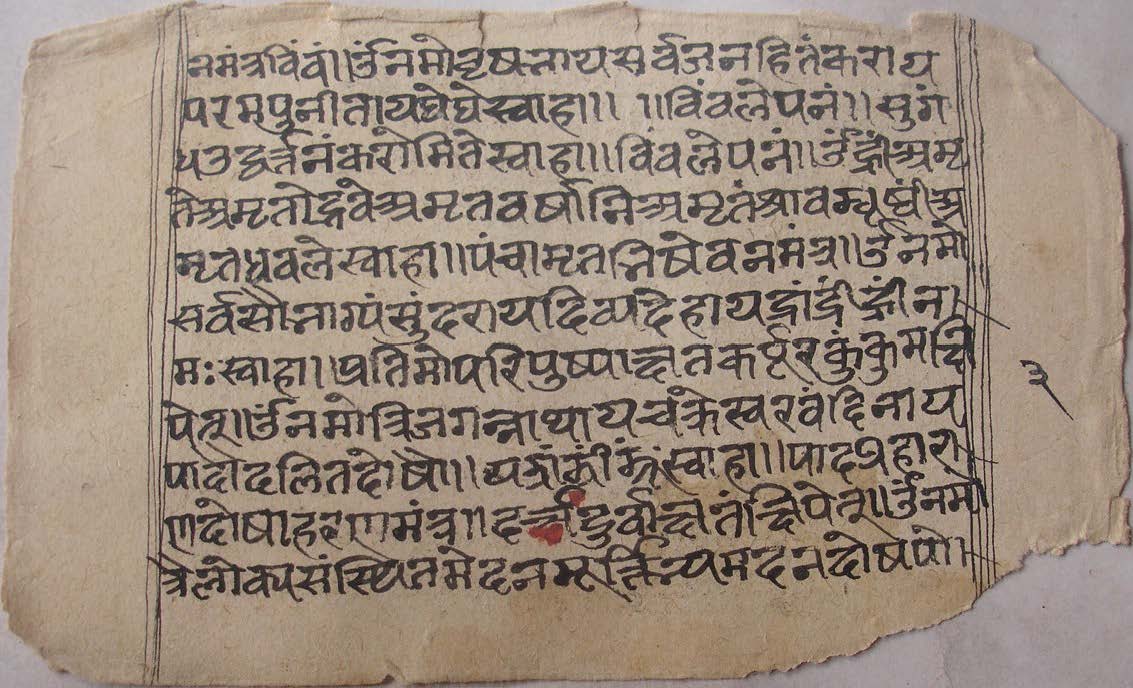 नमंत्रविंवं॥ ॐनमोवृषभायसर्वजनहितंकराय
परमपुनीतायघेघेस्वाहा॥ ॥विंवलेपनं॥ सुगं
धउद्वर्त्तनंकरोमितेस्वाहा॥ विंवलेपनं॥ ॐह्रींअमृ
तेअमृतोद्भवेअमृतवर्षानिअमृतंश्रावम्पूर्ष्वींअ
मृतध्रवलेस्वाहा॥ पंचामृतभिषेवनमंत्र॥ ॐनमो
सर्वसौभाग्यंसुंदरायदिव्यदेहायद्रांद्रींद्रींन
मःस्वाहा॥ प्रतिमोपरिपुष्पाक्षतकर्पूरकुंकुमक्षि
पेत्॥ ॐनमोत्रिजगन्नाथायचंक्रेस्वरवंदिनाय
पादादलितदोषो॥ झ्रांझ्रींझ्रूंस्वाहा॥ पादऽहारा
णदोषाहरणमंत्र॥ दर्भदुर्वादीतंक्षिपेत्॥ ॐनमो
त्रेलोक्यसंस्थितमेदनमूर्त्तिन्यमदनदोषपो।
३